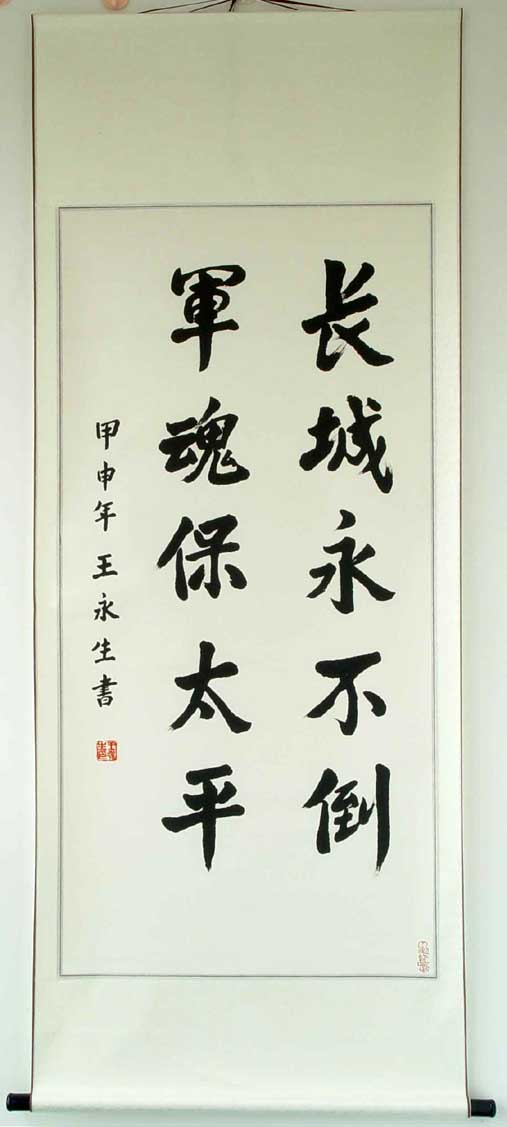 长城永不倒
軍魂保太平
甲申年王永生書